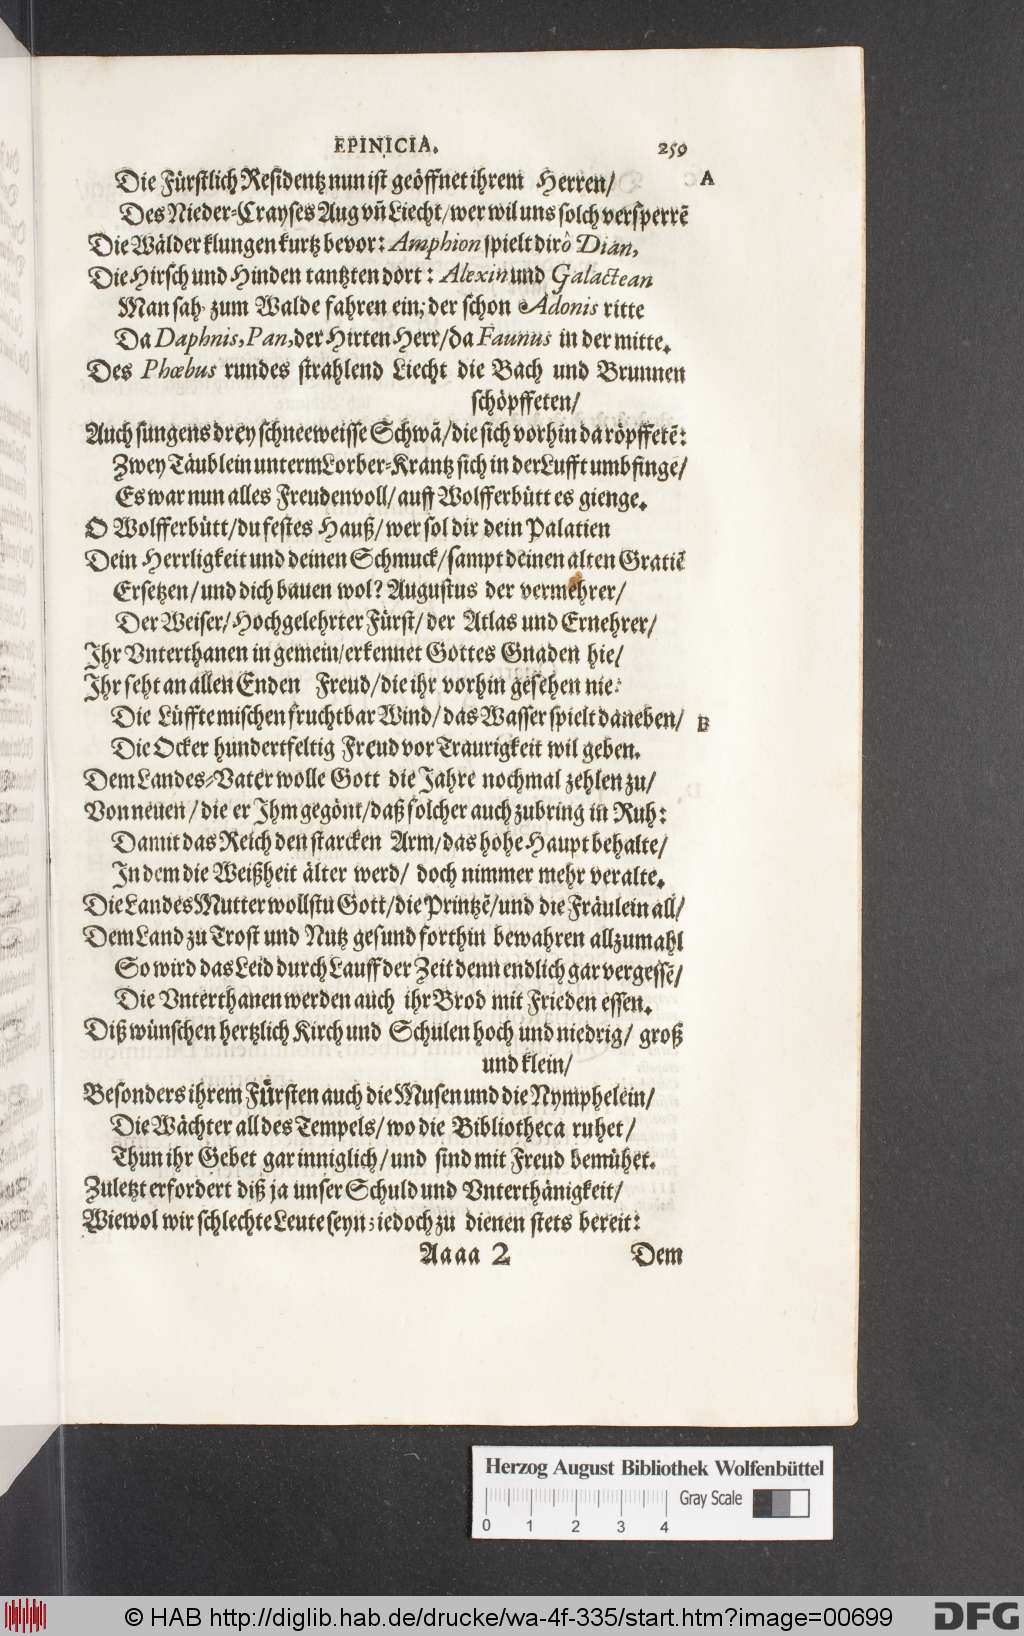 EPINICIA. 259
Die Fürstlich Residentz nun ist geöffnet ihrem Herren/ A
Des Nieder-Crayses Aug vñ Liecht/wer wil uns solch versperrẽ
Die Wälder klungen kurtz bevor: Amphion spielt dir ô Dian,
Die Hirsch und Hinden tantzten dort: Alexin und Galactean
Man sah zum Walde fahren ein; der schon Adonis ritte
Da Daphnis, Pan, der Hirten Herr/da Faunus in der mitte.
Des Phœbus rundes strahlend Liecht die Bach und Brunnen
schöpffeten/
Auch sungens drey schneeweisse Schwä/die sich vorhin da röpffetẽ:
Zwey Täublein unterm Lorber-Krantz sich in der Lufft umbfinge/
Es war nun alles Freudenvoll/auff Wolfferbütt es gienge.
O Wolfferbütt/du festes Hauß/wer sol dir dein Palatien
Dein Herrligkeit und deinen Schmuck/sampt deinen alten Gratiẽ
Ersetzen/und dich bauen wol? Augustus der vermehrer/
Der Weiser/Hochgelehrter Fürst/der Atlas und Ernehrer/
Ihr Vnterthanen in gemein/erkennet Gottes Gnaden hie/
Ihr seht an allen Enden Freud/die ihr vorhin gesehen nie:
Die Lüffte mischen fruchtbar Wind/das Wasser spielt daneben/ B
Die Ocker hundertfeltig Freud vor Traurigkeit wil geben.
Dem Landes-Vater wolle Gott die Jahre nochmal zehlen zu/
Von neuen/die er Ihm gegönt/daß solcher auch zubring in Ruh:
Damit das Reich den starcken Arm/das hohe Haupt behalte/
In dem die Weißheit älter werd/doch nimmer mehr veralte.
Die Landes Mutter wollstu Gott/die Printzẽ/und die Fräulein all/
Dem Land zu Trost und Nutz gesund forthin bewahren allzumahl
So wird das Leid durch Lauff der Zeit denn endlich gar vergessẽ/
Die Vnterthanen werden auch ihr Brod mit Frieden essen.
Diß wünschen hertzlich Kirch und Schulen hoch und niedrig/groß
und klein/
Besonders ihrem Fürsten auch die Musen und die Nymphelein/
Die Wächter all des Tempels/wo die Bibliotheca ruhet/
Thun ihr Gebet gar inniglich/und sind mit Freud bemühet.
Zuletzt erfordert diß ja unser Schuld und Vnterthänigkeit/
Wiewol wir schlechte Leute seyn; iedoch zu dienen stets bereit:
Aaaa 2 Dem
Herzog August Bibliothek Wolfenbüttel
Gray Scale
0 1 2 3 4
© HAB http://diglib.hab.de/drucke/wa-4f-335/start.htm?image=00699 DFG